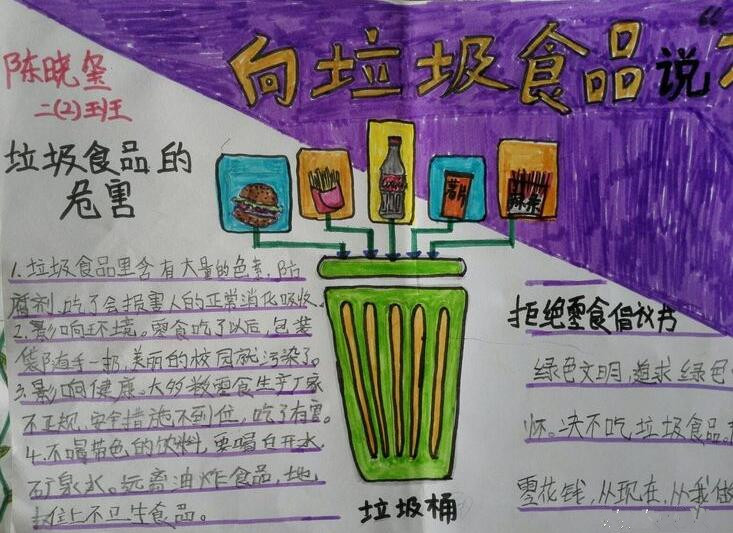 向垃圾食品说“不
陈晓玺
二(2)班
垃圾食品的
危害
薯片
辣条
1. 垃圾食品里含有大量的色素,防
腐剂,吃了会损害人的正常消化吸收。
2.影响环境。零食吃了以后,包装
袋随手一扔,美丽的校园就污染了。
3.影响健康。大多数零食生产厂家
不正规,安全措施不到位,吃了有害。
4.不喝带色的饮料,要喝白开水,
矿泉水。远离油炸食品,地
摊上不卫生食品。
垃圾桶
拒绝零食倡议书
绿色文明,追求绿色
怀。决不吃垃圾食品。
零花钱,从现在,从我做